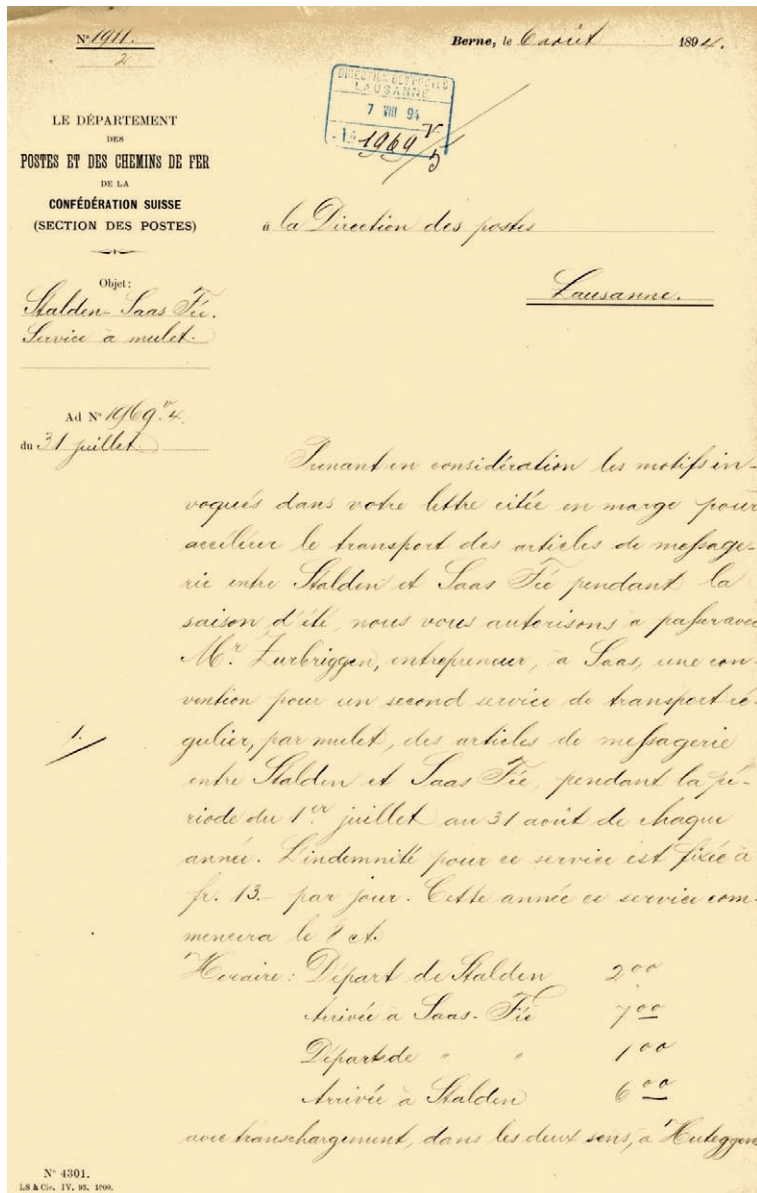 N° 1911.
2
Berne, le 6 août 1894.
DIRECTION DES POSTES
LAUSANNE
7 VIII 94
1969 V.
5
LE DÉPARTEMENT
DES
POSTES ET DES CHEMINS DE FER
DE LA
CONFÉDÉRATION SUISSE
(SECTION DES POSTES)
à la Direction des postes
Lausanne.
Objet:
Stalden-Saas Fée.
Service à mulet.
Ad N° 1969 v. 4.
du 31 juillet
Prenant en considération les motifs in-
voqués dans votre lettre citée en marge pour
accélérer le transport des articles de message-
rie entre Stalden et Saas Fée pendant la
saison d'été, nous vous autorisons à passer avec
Mr. Zurbriggen, entrepreneur, à Saas, une con-
vention pour un second service de transport ré-
1.
gulier, par mulet, des articles de messagerie
entre Stalden et Saas Fée, pendant la pé-
riode du 1er juillet au 31 août de chaque
année. L'indemnité pour ce service est fixée à
fr. 13.- par jour. Cette année ce service com-
mencera le 8 ct.
Horaire: Départ de Stalden 2 00
Arrivée à Saas-Fée 7 00
Départ de " " 1 00
Arrivée à Stalden 6 00
avec transchargement, dans les deux sens, à Huteggen
N° 4301.
LS & Cie. IV. 93. 1000.